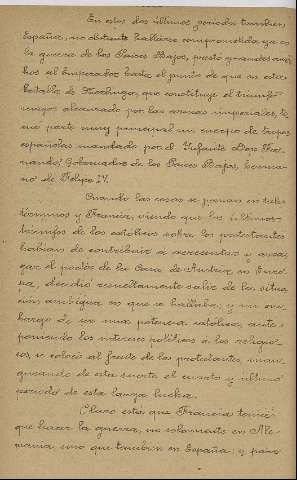 En estos dos últimos periodos tambien
España, no obstante hallarse comprometida ya en
la guerra de los Países Bajos, prestó grandes auxi-
lios al Emperador hasta el punto de que en esta
batalla de Nordlinga, que constituye el triunfo
mayor alcanzado por las armas imperiales, to-
mó parte muy principal un cuerpo de tropas
españolas mandado por el Infante Don Fer-
nando, Gobernador de los Países Bajos, herma-
no de Felipe IV.
Cuando las cosas se ponian en tales
términos y Francia, viendo que los últimos
triunfos de los católicos sobre los protestantes
habian de contribuir á acrecentar y arrai-
gar el poder de la Casa de Austria en Euro-
pa, decidió resueltamente salir de la situa-
ción ambigua en que se hallaba; y sin em-
bargo de ser una potencia católica, ante-
poniendo los intereses políticos á los religio-
sos, se colocó al frente de los protestantes, inau-
gurando de esta suerte el cuarto y último
período de esta larga lucha.
Claro está que Francia tenia
que hacer la guerra, no solamente en Ale-
mania, sino que tambien en España; y para